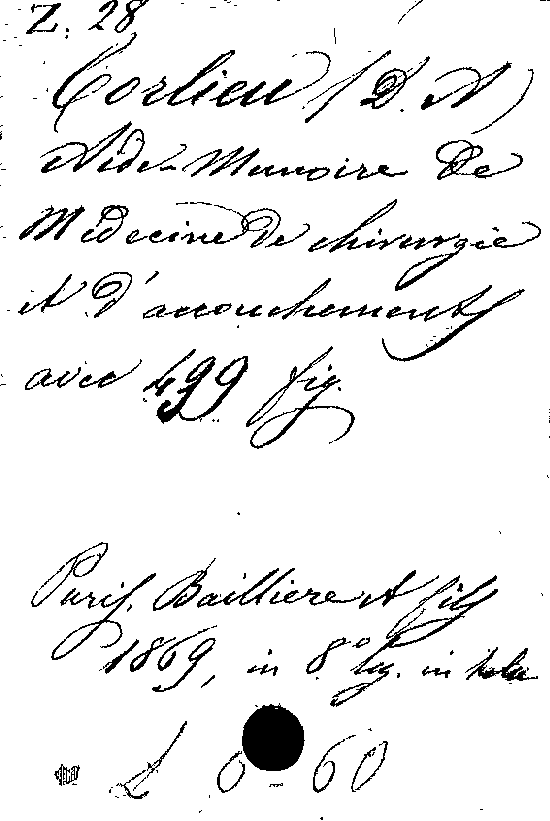 Z. 28
Corlieu (D. A)
Aide-Memoire De
Médecine De chirurgie
et d'accouchements
avec 499 fig.
Paris. Bailliere et fils
1869, in 8º leg. in tela
L 6-60